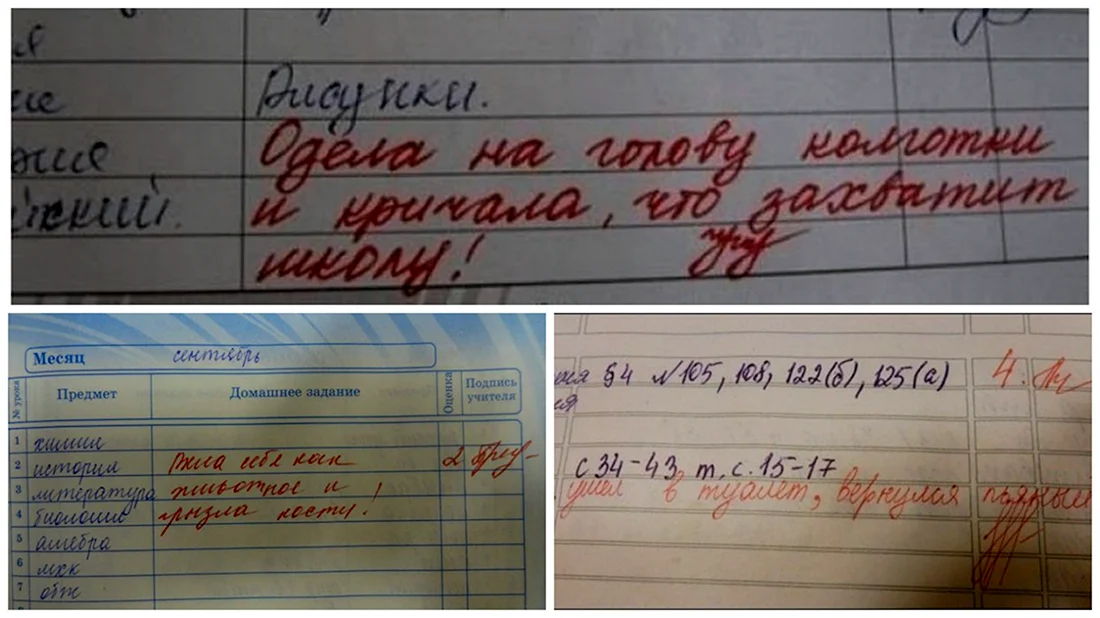 ие
Рисунки.
Одела на голову колготки
и кричала, что захватит
школу!
Месяц сентябрь
№ урока Предмет Домашнее задание Оценка Подпись учителя
1 химия
2 история Вела себя как 2
3 литература животное и
4 биология грызла кости!
5 алгебра
6 мхк
7 обж
§4 №105, 108, 122(б), 125(а) 4.
с 34-43 т. с. 15-17
ушел в туалет, вернулся пьяный